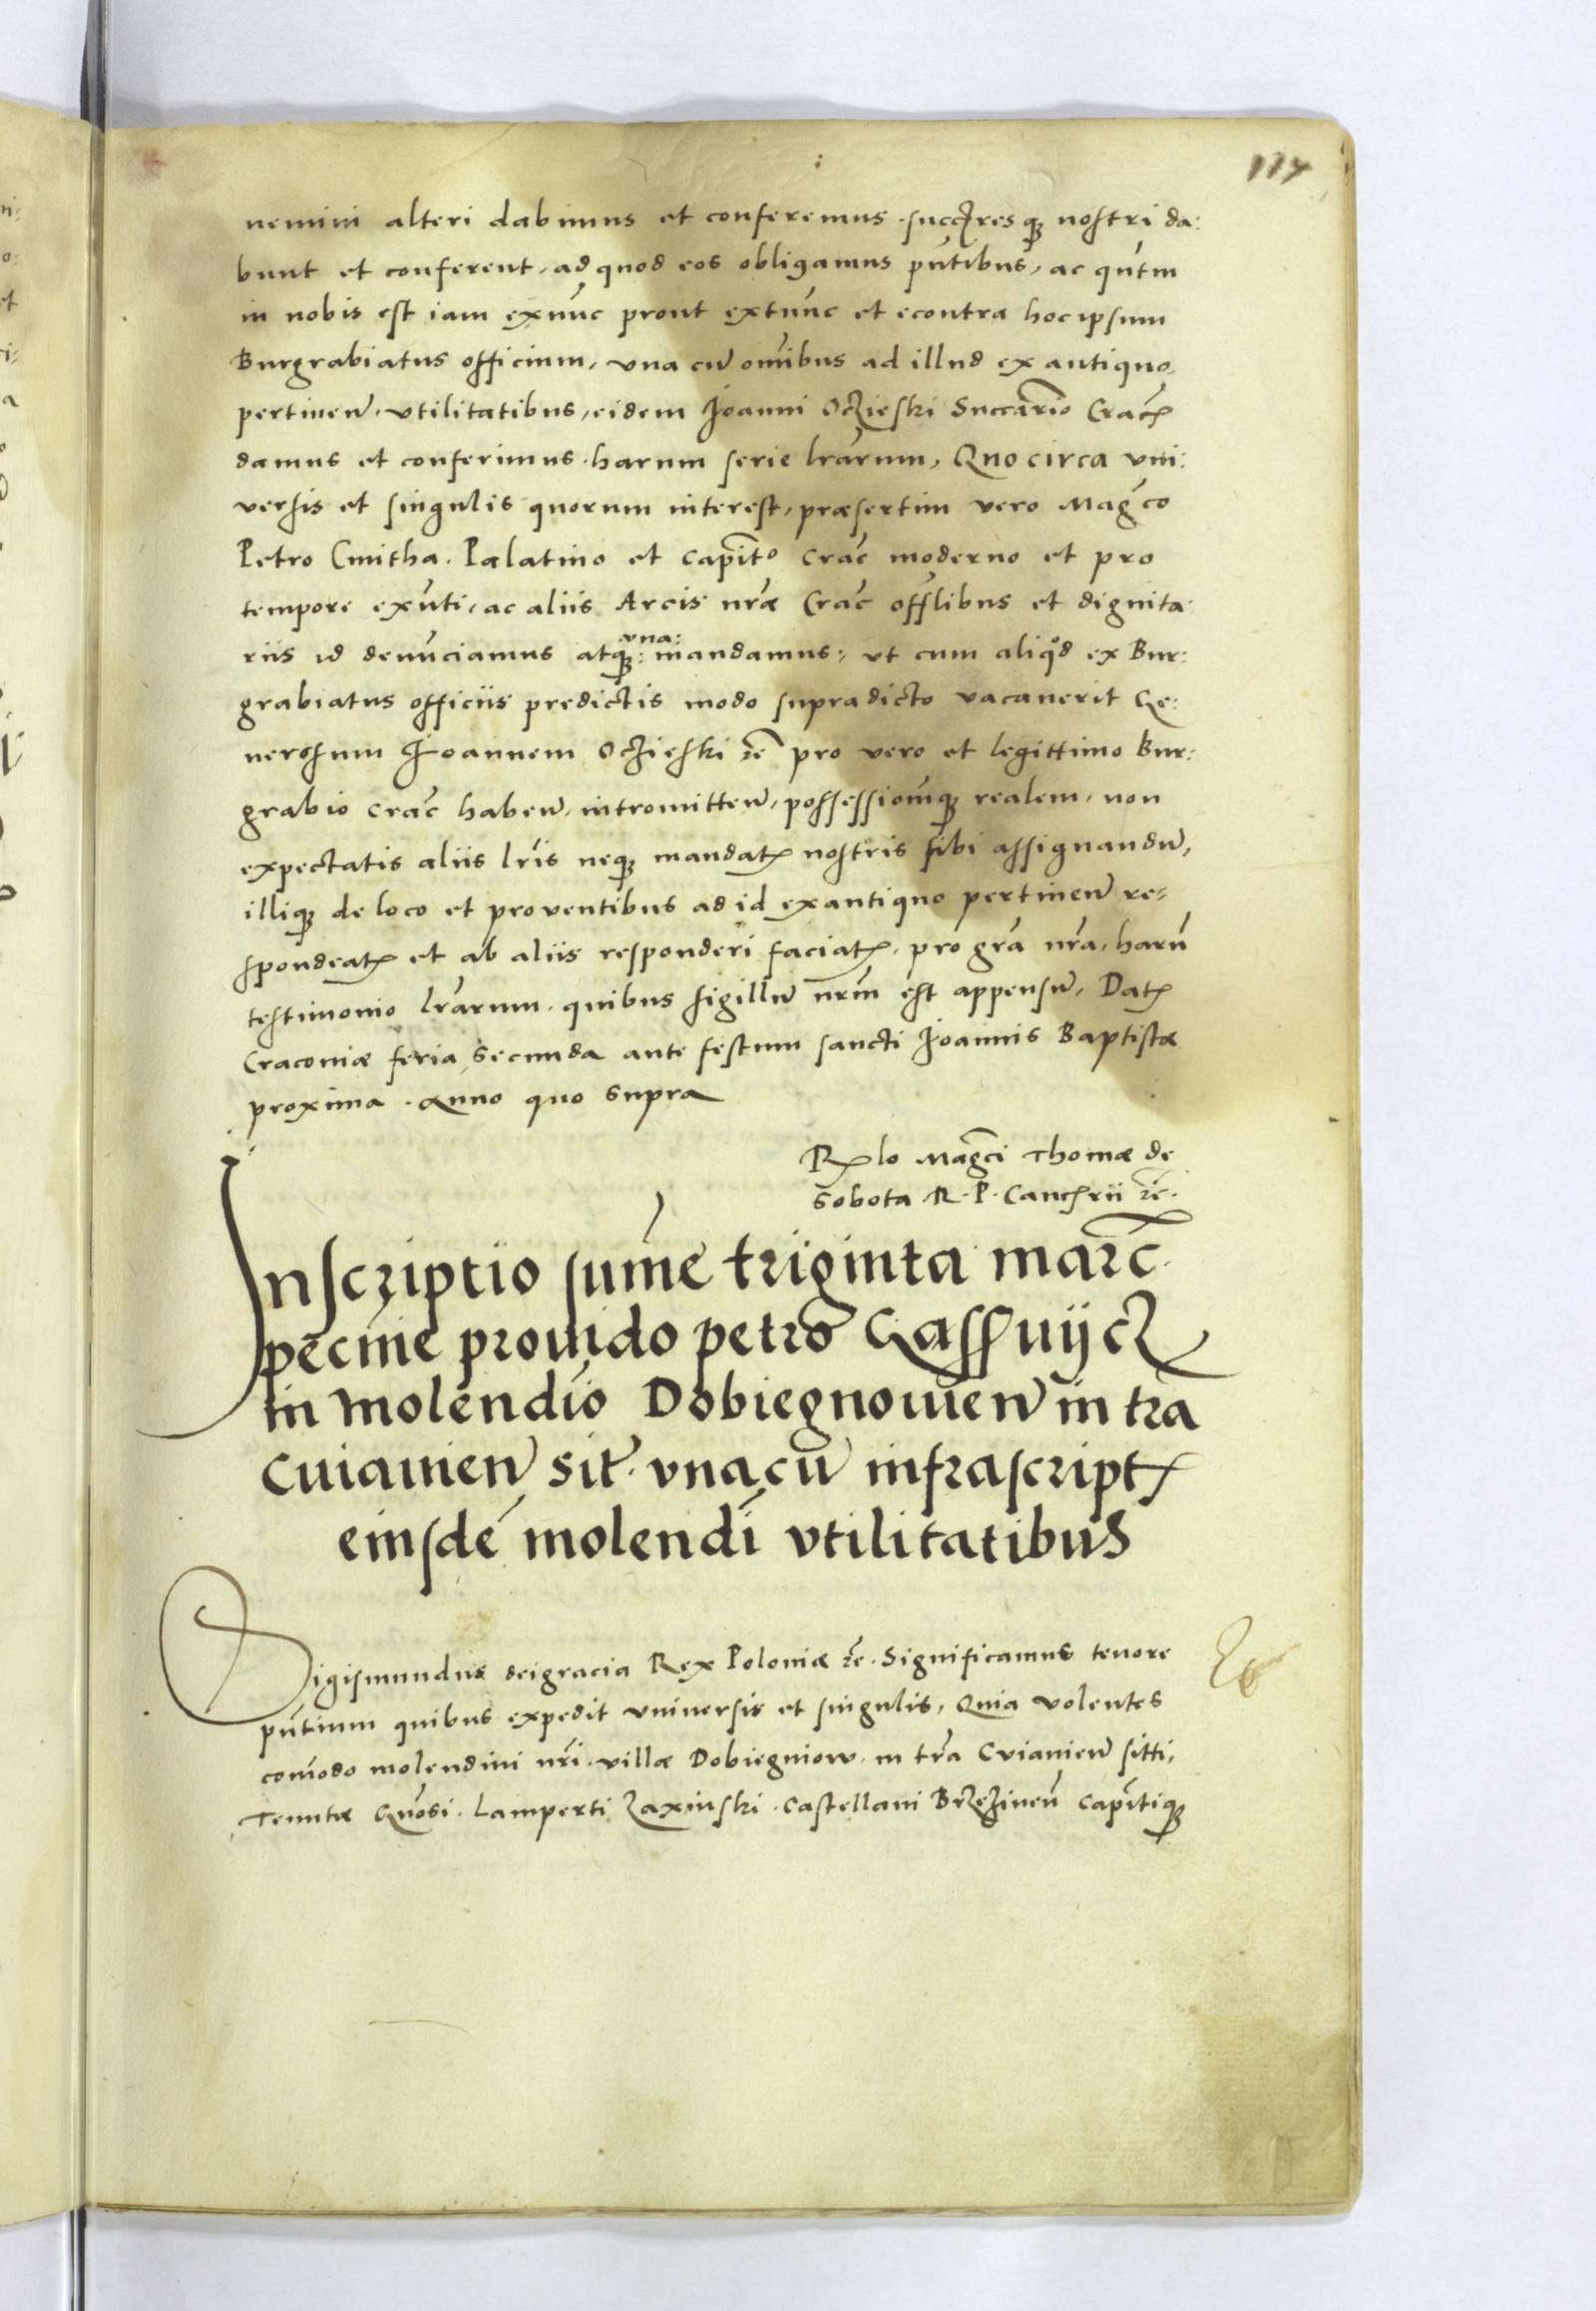 117
nemini alteri dabimus et conferemus. succ̄resq; nostri da:
bunt et conferent, ad quod eos obligamus pn̄tibus, ac qn̄tm
in nobis est iam exnūc prout extūnc et econtra hoc ipsum
Burgrabiatus officium, vna cū om̄ibus ad illud ex antiquo
pertinen̄. vtilitatibus, eidem Joanni Oczieski Succ̄ario Crac̄
damus et conferimus. harum serie lr̄arum, Quocirca vni:
versis et singulis quorum interest, præsertim vero Mag̅co
Petro Cmitha. Palatino et Capit̄o Crac̄ moderno et pro
tempore exn̄ti, ac aliis Arcis nr̄æ Crac̄ off̄libus et dignita
riis id denūciamus atq;: vna: mandamus, vt cum aliqͦd ex Bur:
grabiatus officiis predictis modo supradicto vacauerit Ge:
nerosum Joannem Oczieski zc̄ pro vero et legittimo Bur:
grabio Crac̄ haben̄. intromitten̄, possessionq̄; realem, non
expectatis aliis lr̄is neq; mandatꝭ nostris sibi assignandū,
illiq; de loco et proventibus ad id exantiquo pertinen̄ re-
spondeatꝭ et ab aliis responderi faciatꝭ. pro gr̄a nr̄a, harū
testimonio lr̄arum. quibus sigillū nr̄m est appensū, Datꝭ
Cracoviæ feria secunda ante festum sancti Joannis Baptistæ
proxima. Anno quo supra
Rꝭlo Mag̅ci Thomæ de
Sobota R. P. Canc̄rii zc̄.
Inscriptio sum̄e triginta marc̄.
pecu̅ie prouido petro Gassvijcz
in molendi̅o Dobiegnouien̄ in tr̄a
Cuiauien̄ sit̄. vnacū infrascriptꝭ
eiusdē molendi̅ vtilitatibus
Sigismundus dei gracia Rex Poloniæ zc̄. Significamus tenore
pn̄tium quibus expedit vniuersis et singulis, Quia volentes
com̄odo molendini nr̄i. villæ Dobiegniow. in tr̄a Cuiauien̄ sitti,
Tenutæ Gn̄osi. Lamperti Zaxinski. Castellani Brzezinen̄ Capit̄iq;